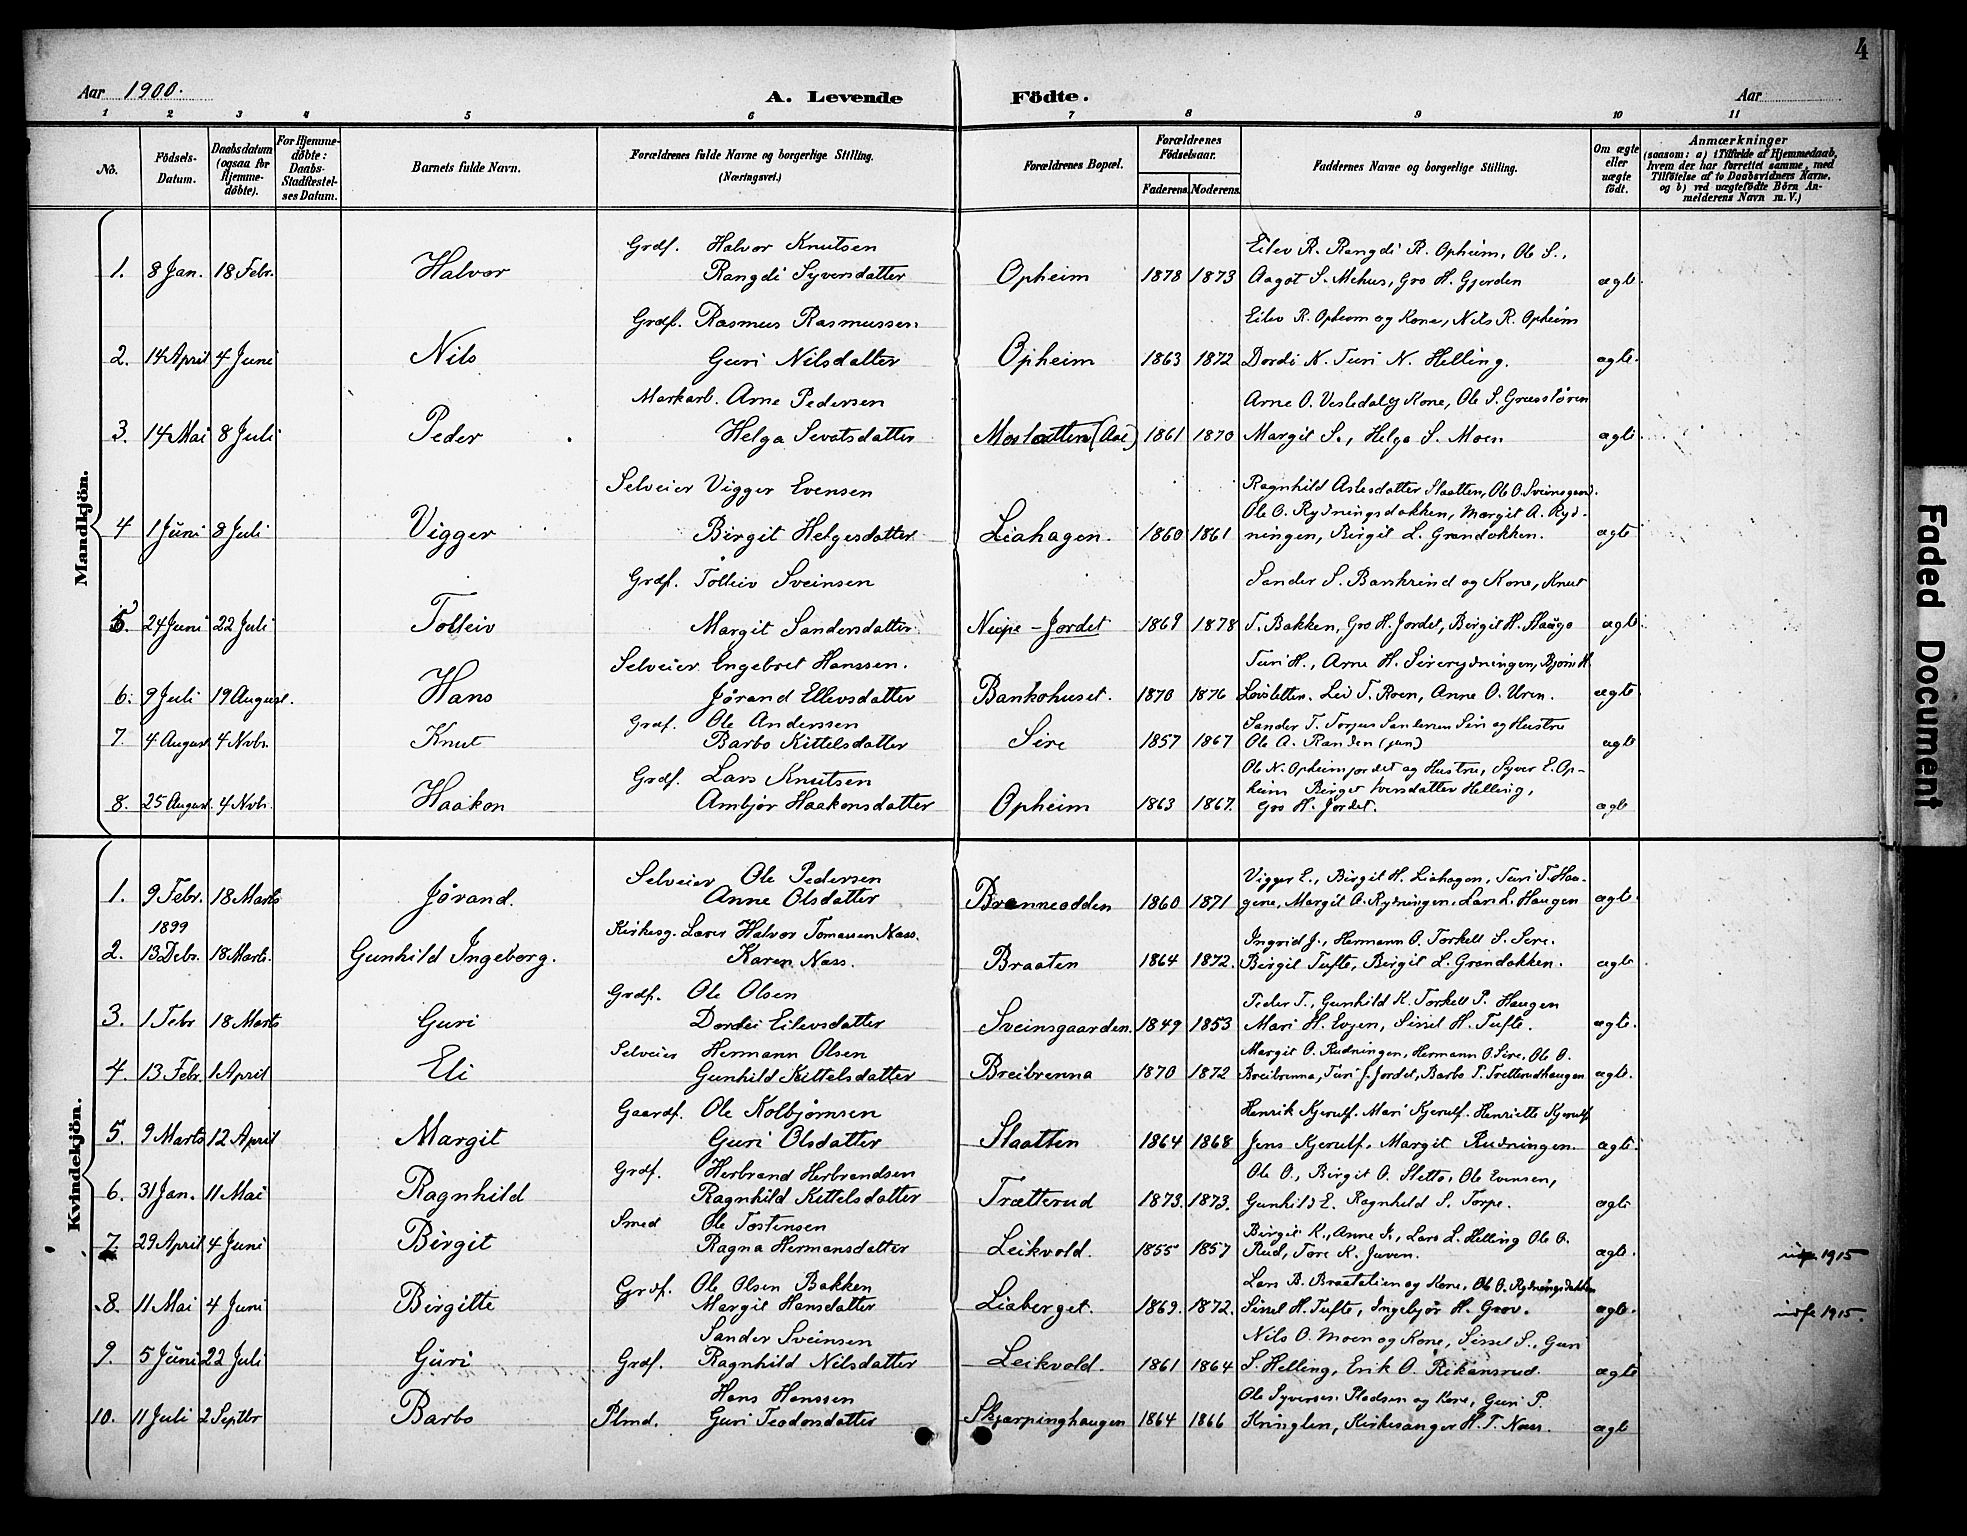 4
Aar 1900.
A. Levende Födte.
Aar
1 2 3 4 5 6 7 8 9 10 11
No.
Födsels-Datum.
Daabsdatum (ogsaa for Hjemmedöbte).
For Hjemmedöbte: Daabs-Stadfæstelses Datum.
Barnets fulde Navn.
Forældrenes fulde Navne og borgerlige Stilling. (Næringsvei.)
Forældrenes Bopæl.
Forældrenes Födselsaar.
Faderens. Moderens.
Faddernes Navne og borgerlige Stilling.
Om ægte eller uægte födt.
Anmærkninger
(saasom: a) i Tilfælde af Hjemmedaab, hvem der har forrettet samme, med Tilföielse af to Daabsvidners Navne, og b) ved uægtefödte Börn Anmelderens Navn m. V.)
Mandkjön.
Grdf. Halvor Knutsen Eilev R. Rangdi R. Opheim, Ole S.,
1. 8 Jan. 18 Febr. Halvor Rangdi Syversdatter Opheim 1878 1873 Aagot S. Mehus, Gro H. Gjerden ægte
Grdf. Rasmus Rasmussen Eilev R. Opheim og Kone, Nils R. Opheim
2. 14 April 4 Juni Nils Guri Nilsdatter Opheim 1863 1872 Dordi N. Turi N. Helling. ægte.
Markarb. Arne Pedersen Arne O. Vesledal og Kone, Ole S. Græsstøren
3. 14 Mai 8 Juli Peder Helga Sevatsdatter Moslaatten (Aal) 1861 1870 Margit S., Helga S. Moen ægte.
Selveier Vigger Evensen Ragnhild Aslesdatter Slaatten, Ole O. Sveinsgaard.
Ole O. Rydningsdokken, Margit A. Ryd-
4 1 Juni 8 Juli Vigger Birgit Helgesdatter Liahagen. 1860 1861 ningen, Birgit L. Grøndokken. ægte
Grdf. Tolleiv Sveinsen Sander S. Barskrind og Kone, Knut
5. 24 Juni 22 Juli Tolleiv Margit Sandersdatter Nupe-Jordet 1869 1878 T. Bakken, Gro H. Jordet, Birgit H. Haugo ægte
Selveier. Engebret Hanssen. Turi H., Arne H. Sirerydningen, Bjørn H.
6. 9 Juli 19 August. Hans Jørand Ellevsdatter Bankohuset. 1870 1876 Loisletten. Lev T. Roen, Anne O. Uren. ægte
Grdf. Ole Anderssen Sander T. Torjus Sandersen Sire og Hustru
7. 4 August 4 Novbr. Knut Barbo Kittelsdatter Sire 1857 1867 Ole A. Randen (jun) ægte
Grdf. Lars Knutsen Ole N. Opheimjordet og Hustru, Syver E. Op-
heim Birget Iversdatter Helling,
8. 25 August. 4 Novbr. Haakon Ambjør Haakonsdatter Opheim 1863 1867. Gro H. Jordet. ægte
Kvindekjön.
Selveier Ole Pedersen Vigger E., Birgit H. Liahagen, Turi T. Hau-
1. 9 Febr. 18 Marts Jørand. Anne Olsdatter Brenneodden 1860 1871 gene, Margit O. Rydningen, Lars L. Haugen ægte.
1899 Kirkesg. Lærer Halvor Tomassen Næss. Ingrid J., Hermann O. Torkell S. Sire.
2. 13 Debr. 18 Marts. Gunhild Ingeborg. Karen Næss. Braaten 1864 1872. Birgit Tufte, Birgit L. Grøndokken. ægte
Grdf. Ole Olsen Peder T., Gunhild K. Torkell P. Haugen
3. 1 Febr 18 Marts Guri Dordei Eilevsdatter Sveinsgaarden. 1849 1853 Mari H. Evjen, Sissel H. Tufte. ægte.
Selveier Hermann Olsen Margit O. Rudningen, Hermann O. Sire, Ole O.
4. 13 Febr. 1 April Eli Gunhild Kittelsdatter Breibrenna 1870 1872 Breibrenna, Turi J. Jordet, Barbo P. Tretterudhaugen ægte.
Gaardf. Ole Kolbjørnsen Henrik Kjerulf. Mari Kjerulf. Henriette Kjerulf
5. 9 Marts 12 April Margit Guri Olsdatter Slaatten 1864 1868 Jens Kjerulf, Margit Rudningen. ægte
Grdf. Herbrand Herbrandsen Ole O., Birgit O. Sletto, Ole Evensen,
6. 31 Jan. 11 Mai Ragnhild Ragnhild Kittelsdatter Trætterud 1873. 1873. Gunhild E. Ragnhild S. Torpe. ægte
Smed Ole Tostensen Birgit K., Anne J., Lars L. Helling Ole O.
7. 29 April 4 Juni Birgit Ragna Hermansdatter Leikvold. 1855 1857 Rud, Tore K. Juven. ægte. 1915
Grdf. Ole Olsen Bakken Lars B. Braatalien og Kone, Ole O. Rydningsdokken
8. 11 Mai 4 Juni Birgitte Margit Hansdatter Liaberget. 1869. 1872. Sissel H. Tufte, Ingebjør H. Grov. ægte. 1915.
Sander Sveinsen Nils O. Moen og Kone, Sissel S., Guri
9. 5 Juni 22 Juli Guri Grdf. Ragnhild Nilsdatter Leikvold. 1861 1864 S. Helling, Erik O. Rikansrud. ægte
Hans Hanssen Ole Syversen Pladsen og Kone, Guri P.
10. 11 Juli 2 Septbr Barbo Plmd. Guri Teodorsdatter Skjærpinghaugen 1864 1866 Kringlen, Kirkesanger H. T. Næss. ægte
Faded Document